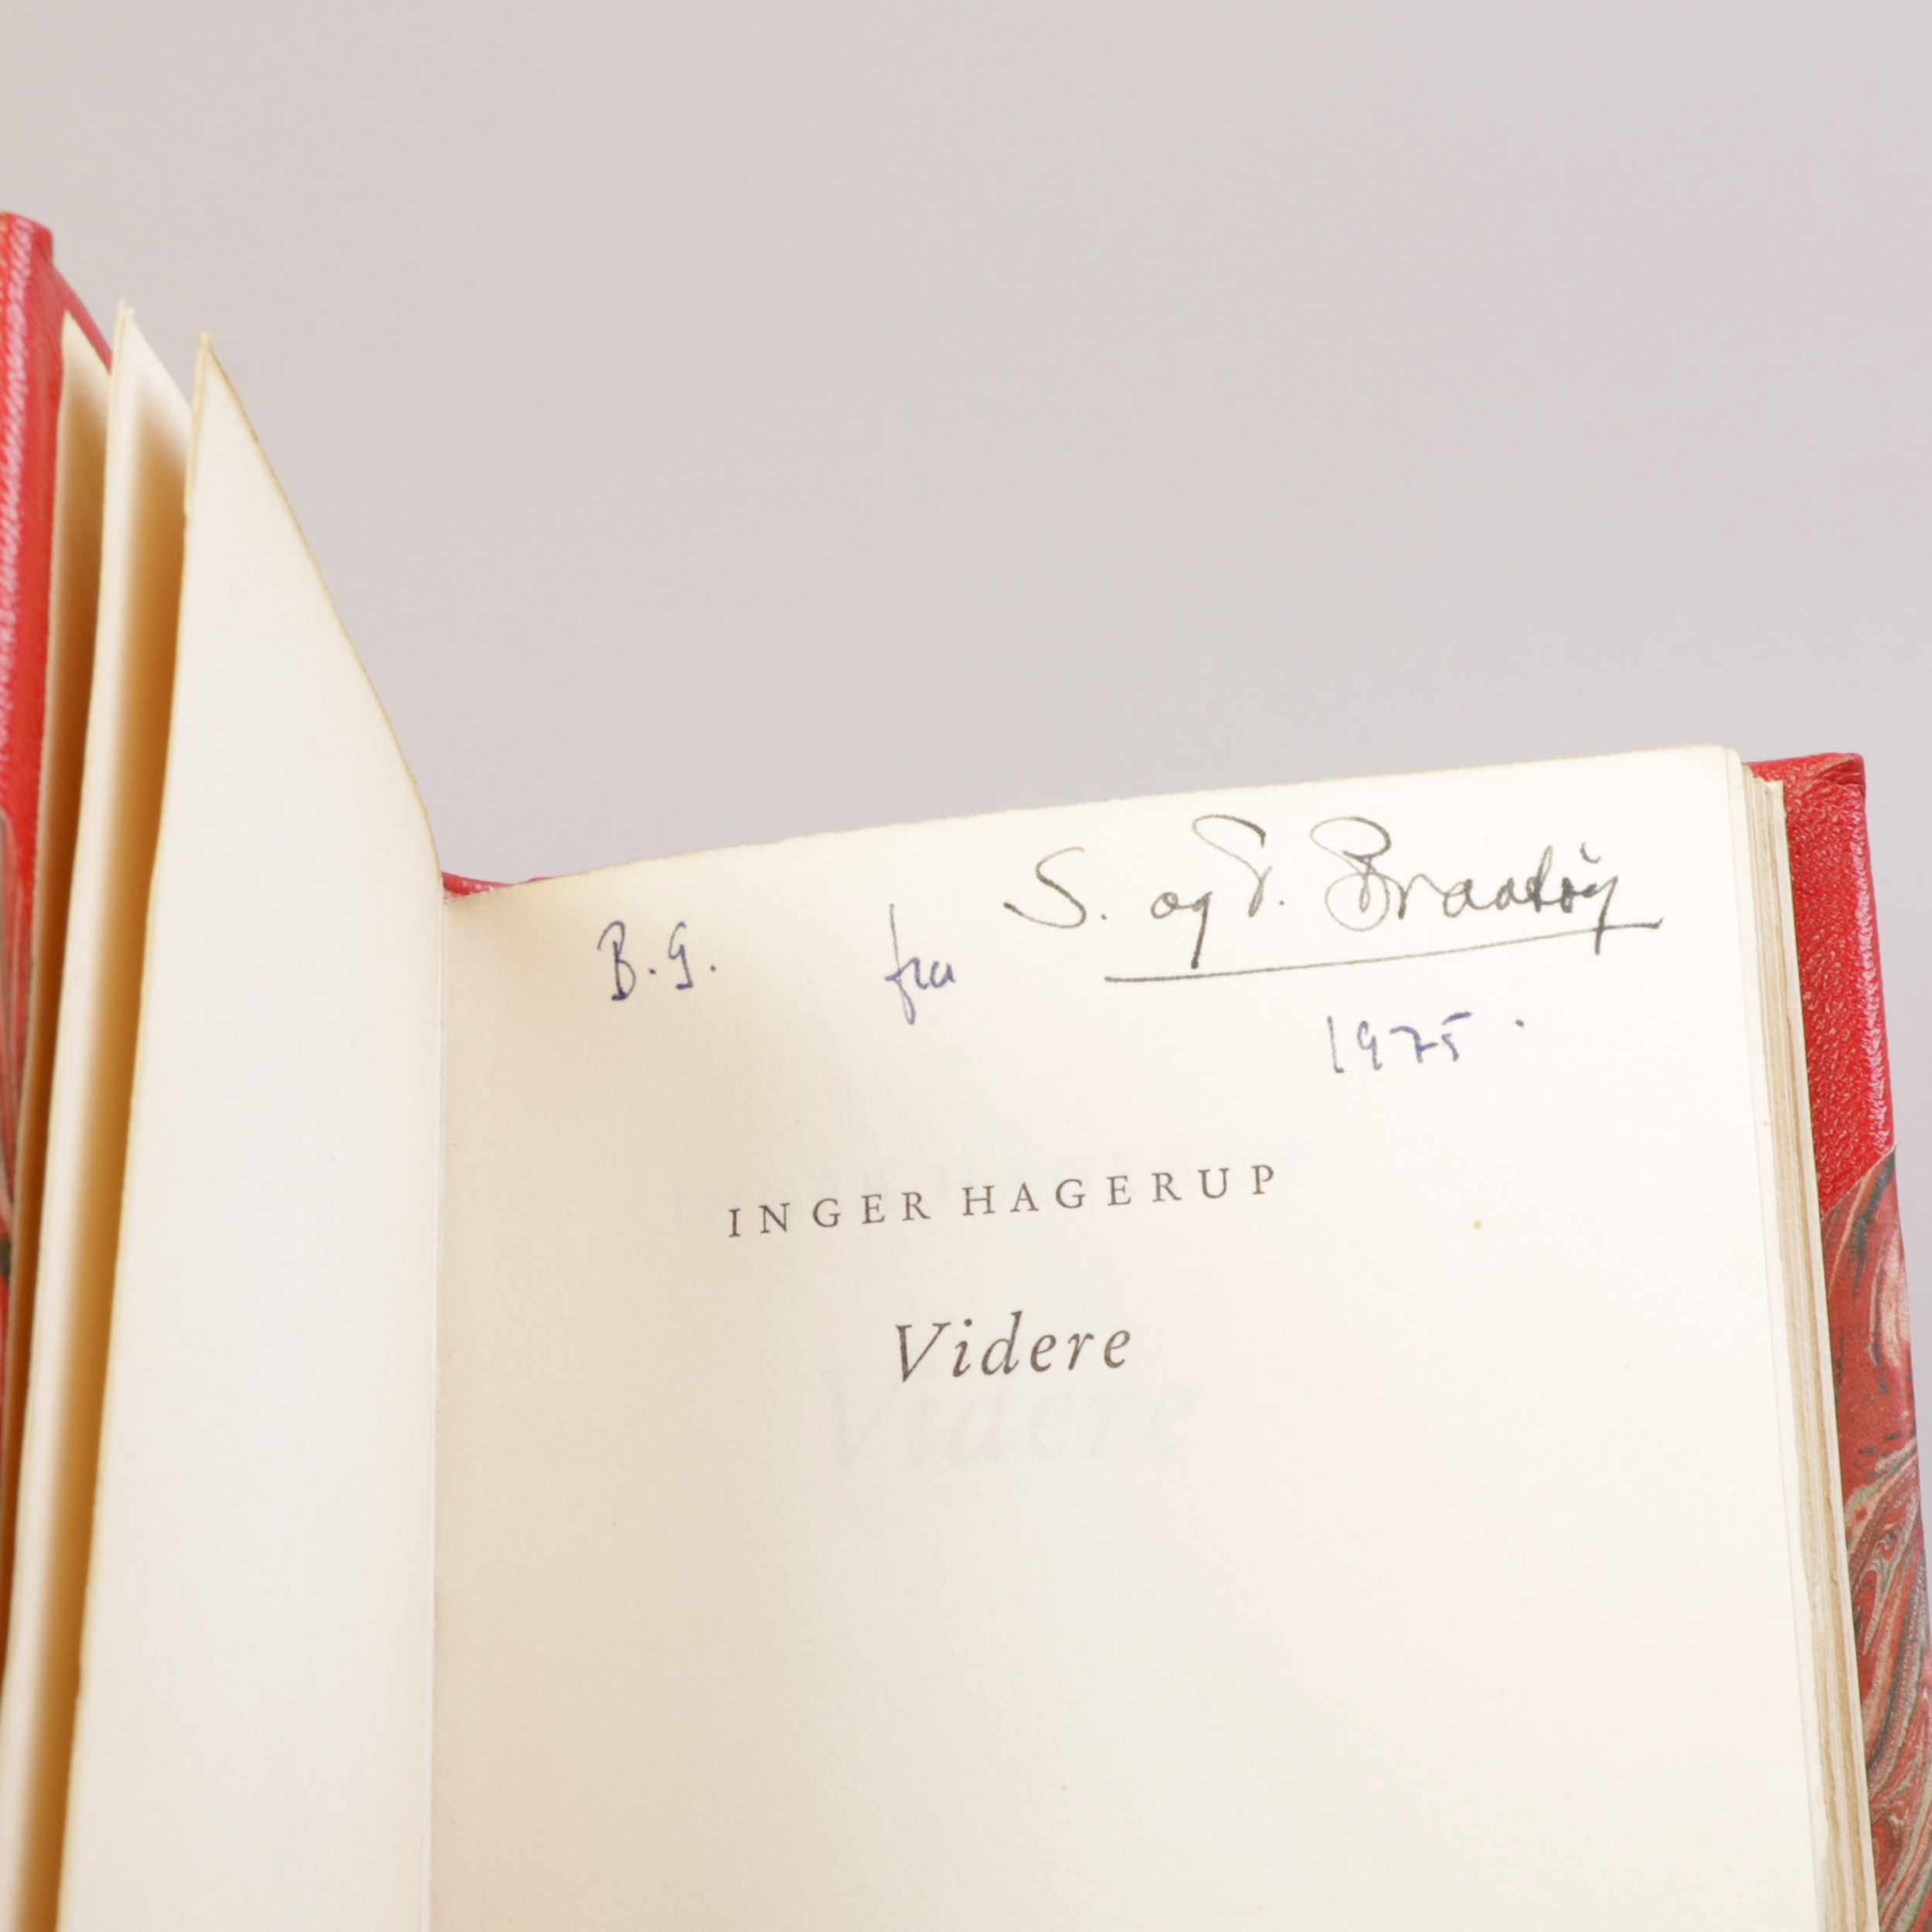 B.G. fra S. og T. Braatøy
1975.
INGER HAGERUP
Videre